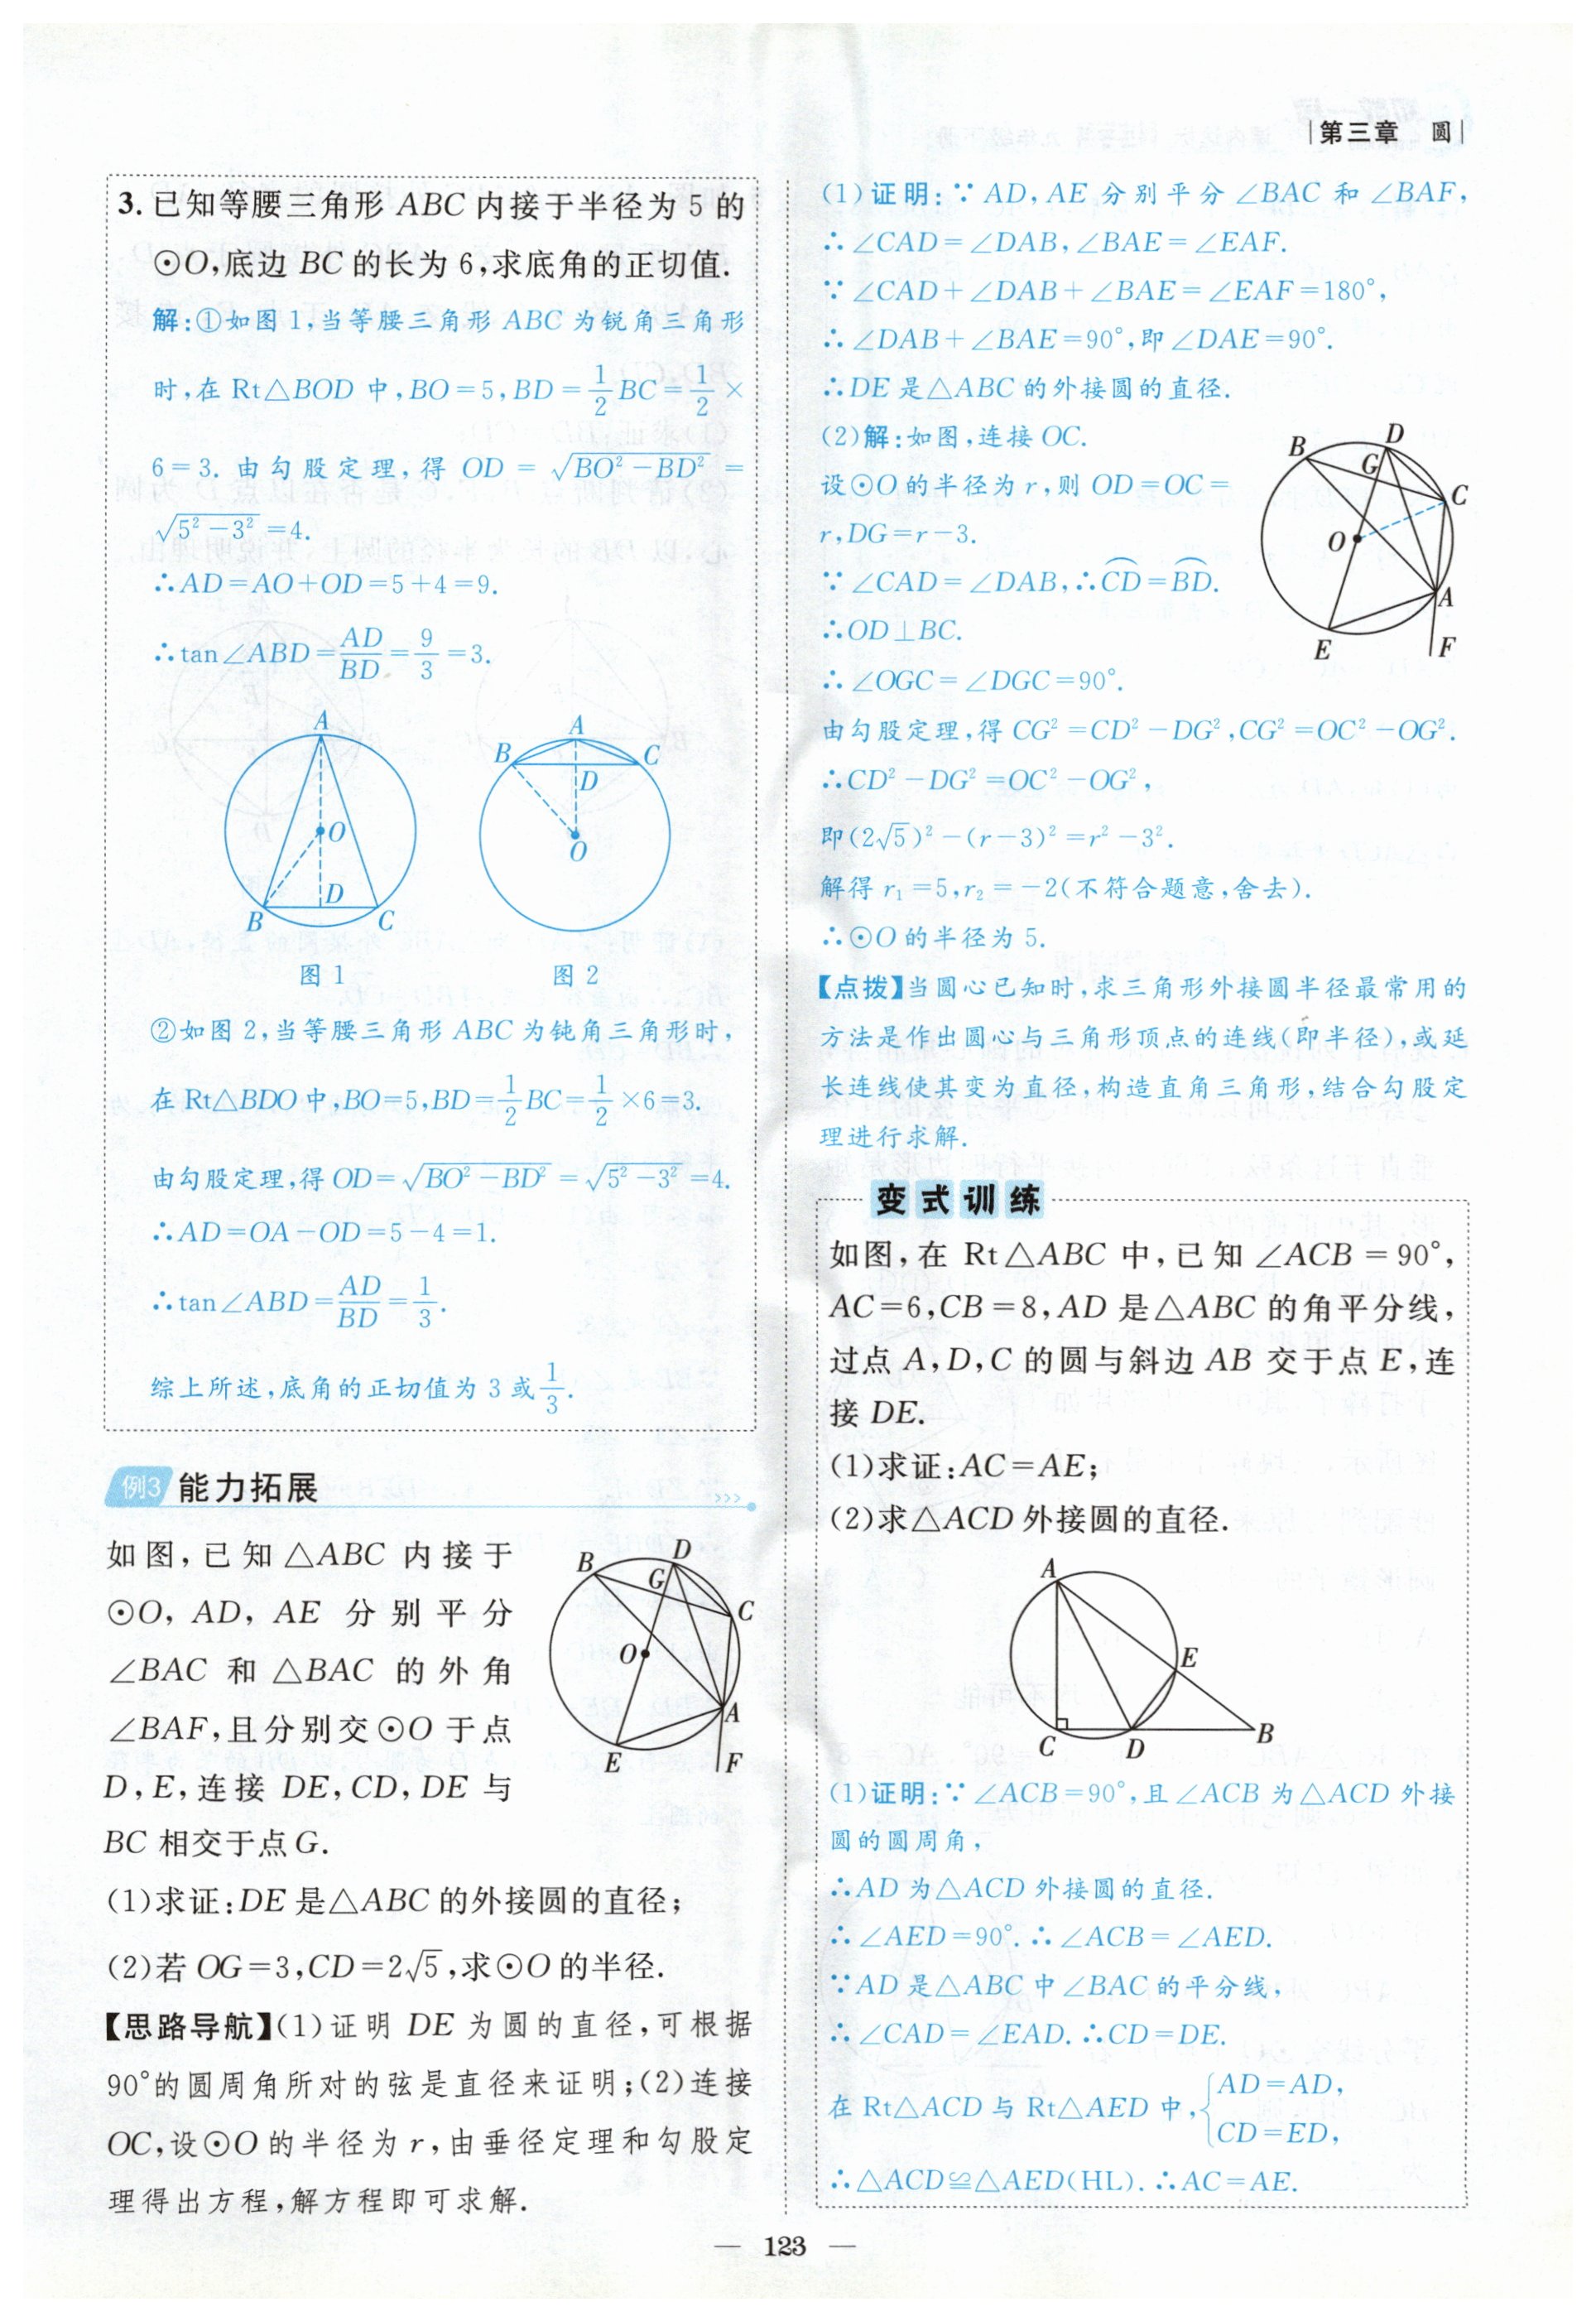 第三章 圆
3. 已知等腰三角形 ABC 内接于半径为 5 的
⊙O,底边 BC 的长为 6,求底角的正切值.
解:①如图 1,当等腰三角形 ABC 为锐角三角形
时,在 Rt△BOD 中,BO=5,BD=1/2 BC=1/2×
6=3. 由勾股定理,得 OD=√(BO²-BD²)=
√(5²-3²)=4.
∴AD=AO+OD=5+4=9.
∴tan∠ABD=AD/BD=9/3=3.
A
O
D
B
C
图 1
A
B
C
D
O
图 2
②如图 2,当等腰三角形 ABC 为钝角三角形时,
在 Rt△BDO 中,BO=5,BD=1/2 BC=1/2×6=3.
由勾股定理,得 OD=√(BO²-BD²)=√(5²-3²)=4.
∴AD=OA-OD=5-4=1.
∴tan∠ABD=AD/BD=1/3.
综上所述,底角的正切值为 3 或 1/3.
例3 能力拓展
如图,已知△ABC 内接于
⊙O, AD, AE 分别平分
∠BAC 和△BAC 的外角
∠BAF,且分别交⊙O 于点
D,E,连接 DE,CD,DE 与
BC 相交于点 G.
B
D
G
C
O
A
E
F
(1)求证:DE 是△ABC 的外接圆的直径;
(2)若 OG=3,CD=2√5,求⊙O 的半径.
【思路导航】(1)证明 DE 为圆的直径,可根据
90°的圆周角所对的弦是直径来证明;(2)连接
OC,设⊙O 的半径为 r,由垂径定理和勾股定
理得出方程,解方程即可求解.
(1)证明:∵AD,AE 分别平分∠BAC 和∠BAF,
∴∠CAD=∠DAB,∠BAE=∠EAF.
∵∠CAD+∠DAB+∠BAE=∠EAF=180°,
∴∠DAB+∠BAE=90°,即∠DAE=90°.
∴DE 是△ABC 的外接圆的直径.
(2)解:如图,连接 OC.
设⊙O 的半径为 r,则 OD=OC=
r,DG=r-3.
∵∠CAD=∠DAB,∴⌒CD=⌒BD.
∴OD⊥BC.
∴∠OGC=∠DGC=90°.
B
D
G
C
O
A
E
F
由勾股定理,得 CG²=CD²-DG²,CG²=OC²-OG².
∴CD²-DG²=OC²-OG²,
即(2√5)²-(r-3)²=r²-3².
解得 r₁=5,r₂=-2(不符合题意,舍去).
∴⊙O 的半径为 5.
【点拨】当圆心已知时,求三角形外接圆半径最常用的
方法是作出圆心与三角形顶点的连线(即半径),或延
长连线使其变为直径,构造直角三角形,结合勾股定
理进行求解.
变式训练
如图,在 Rt△ABC 中,已知∠ACB=90°,
AC=6,CB=8,AD 是△ABC 的角平分线,
过点 A,D,C 的圆与斜边 AB 交于点 E,连
接 DE.
(1)求证:AC=AE;
(2)求△ACD 外接圆的直径.
A
E
C
D
B
(1)证明:∵∠ACB=90°,且∠ACB 为△ACD 外接
圆的圆周角,
∴AD 为△ACD 外接圆的直径.
∴∠AED=90°.∴∠ACB=∠AED.
∵AD 是△ABC 中∠BAC 的平分线,
∴∠CAD=∠EAD.∴CD=DE.
在 Rt△ACD 与 Rt△AED 中,{AD=AD,
CD=ED,
∴△ACD≌△AED(HL).∴AC=AE.
— 123 —